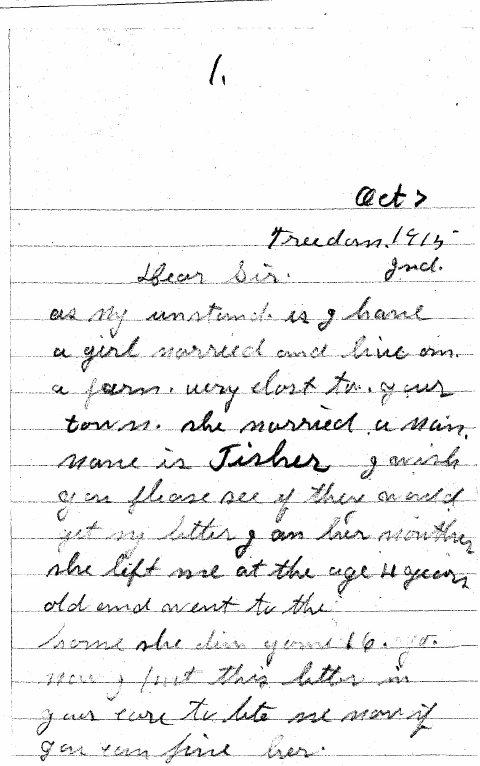 1.
Oct 7
Freedom. 1915
Ind.
Dear Sir.
as my unstand. is I have
a girl married and live on.
a farm. very clost to. your
town. she married a man.
name is Fisher I wish
you please see if they would
get my letter I am her mouther
she left me at the age 4 years
old and went to the
home she 16. yo.
now I put this letter in
your care to lete me now if
you can fine her.